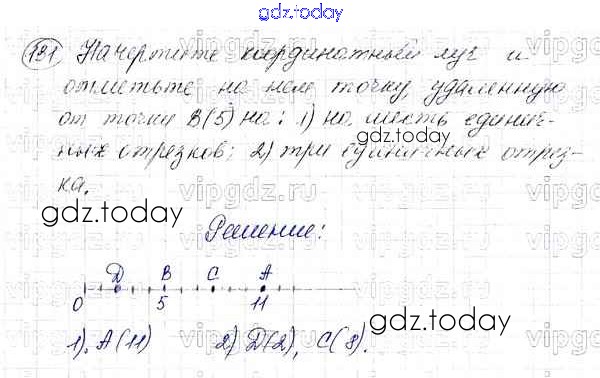 gdz.today
131 Начертите координатный луч и
отметьте на нем точку удаленную
от точки B(5) на: 1) на шесть единич-
ных отрезков; 2) три единичных отрез-
ка.
gdz.today
gdz.today
Решение:
D B C A
0 5 11
gdz.today
1). A(11) 2) D(2), C(8).